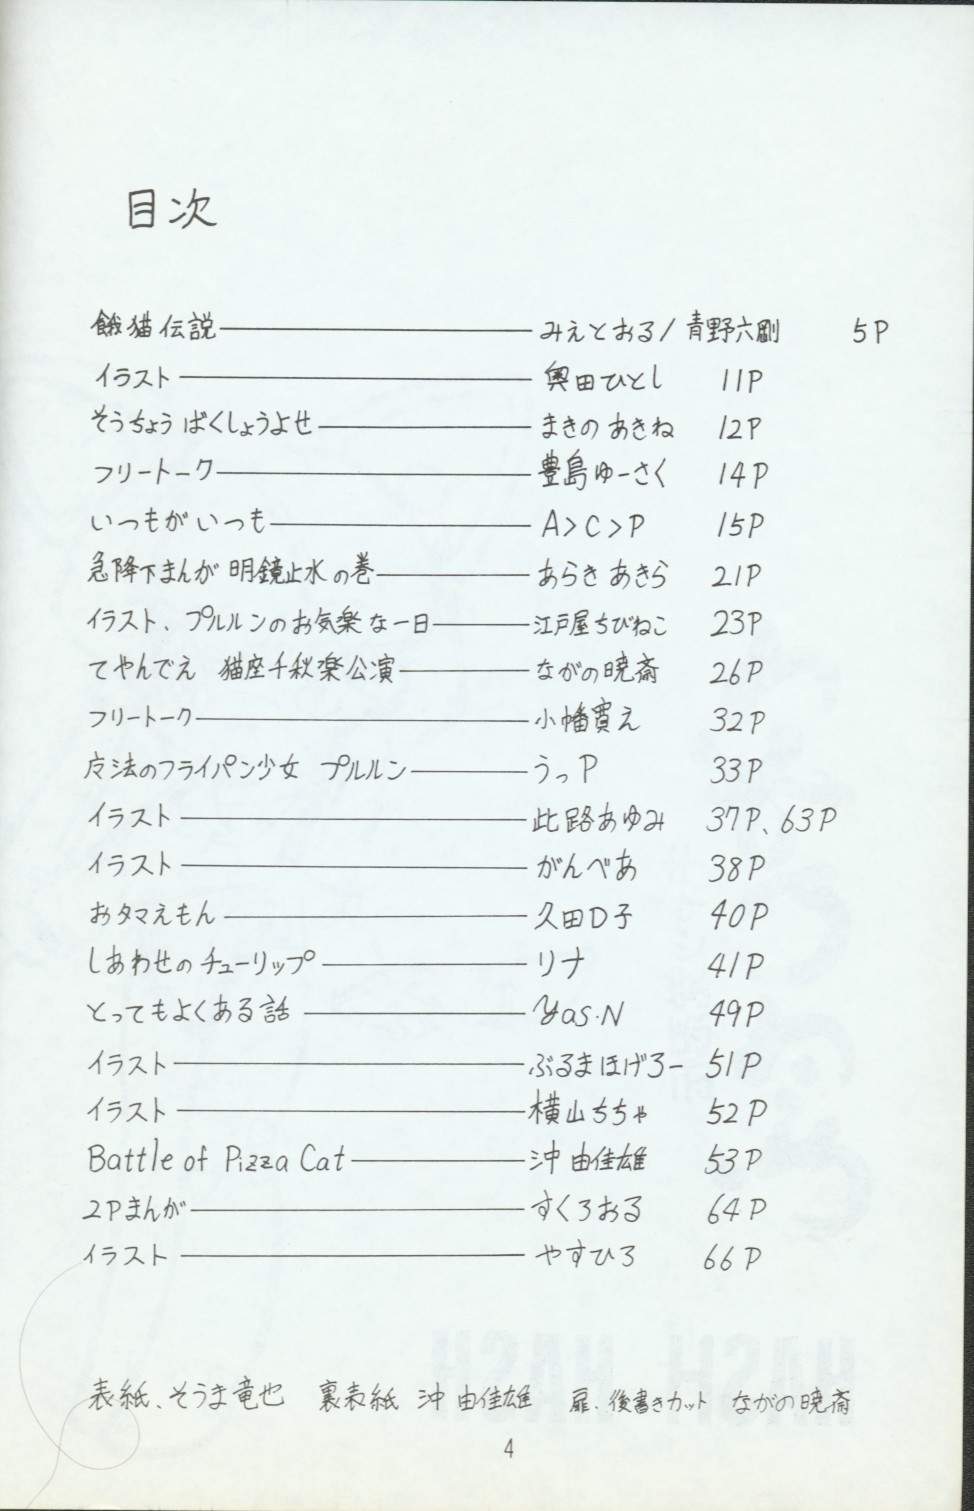 目次
餓猫伝説 ― みえとおる/青野六剛 5P
イラスト ― 奥田ひとし 11P
そうちょうばくしょうよせ ― まきのあきね 12P
フリートーク ― 豊島ゆーさく 14P
いつもがいつも ― A>C>P 15P
急降下まんが 明鏡止水の巻 ― あらきあきら 21P
イラスト、プルルンのお気楽な一日 ― 江戸屋ちびねこ 23P
てやんでえ 猫座千秋楽公演 ― ながの暁斎 26P
フリートーク ― 小幡貫え 32P
魔法のフライパン少女 プルルン ― うっP 33P
イラスト ― 此路あゆみ 37P、63P
イラスト ― がんべあ 38P
おタマえもん ― 久田D子 40P
しあわせのチューリップ ― リナ 41P
とってもよくある話 ― Yas.N 49P
イラスト ― ぶるまほげろー 51P
イラスト ― 横山ちちゃ 52P
Battle of Pizza Cat ― 沖由佳雄 53P
2Pまんが ― すくろおる 64P
イラスト ― やすひろ 66P
表紙、そうま竜也 裏表紙 沖由佳雄 扉、後書きカット ながの暁斎
4